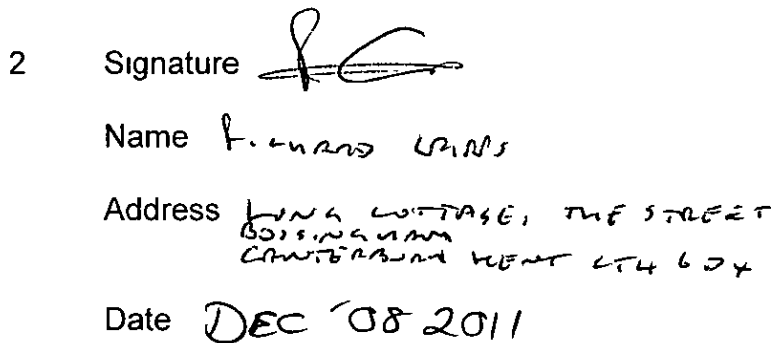 2 Signature
Name RICHARD
Address LONG COTTAGE, THE STREET
BOSSINGHAM
CANTERBURY KENT CT4 6DX
Date DEC '08 2011